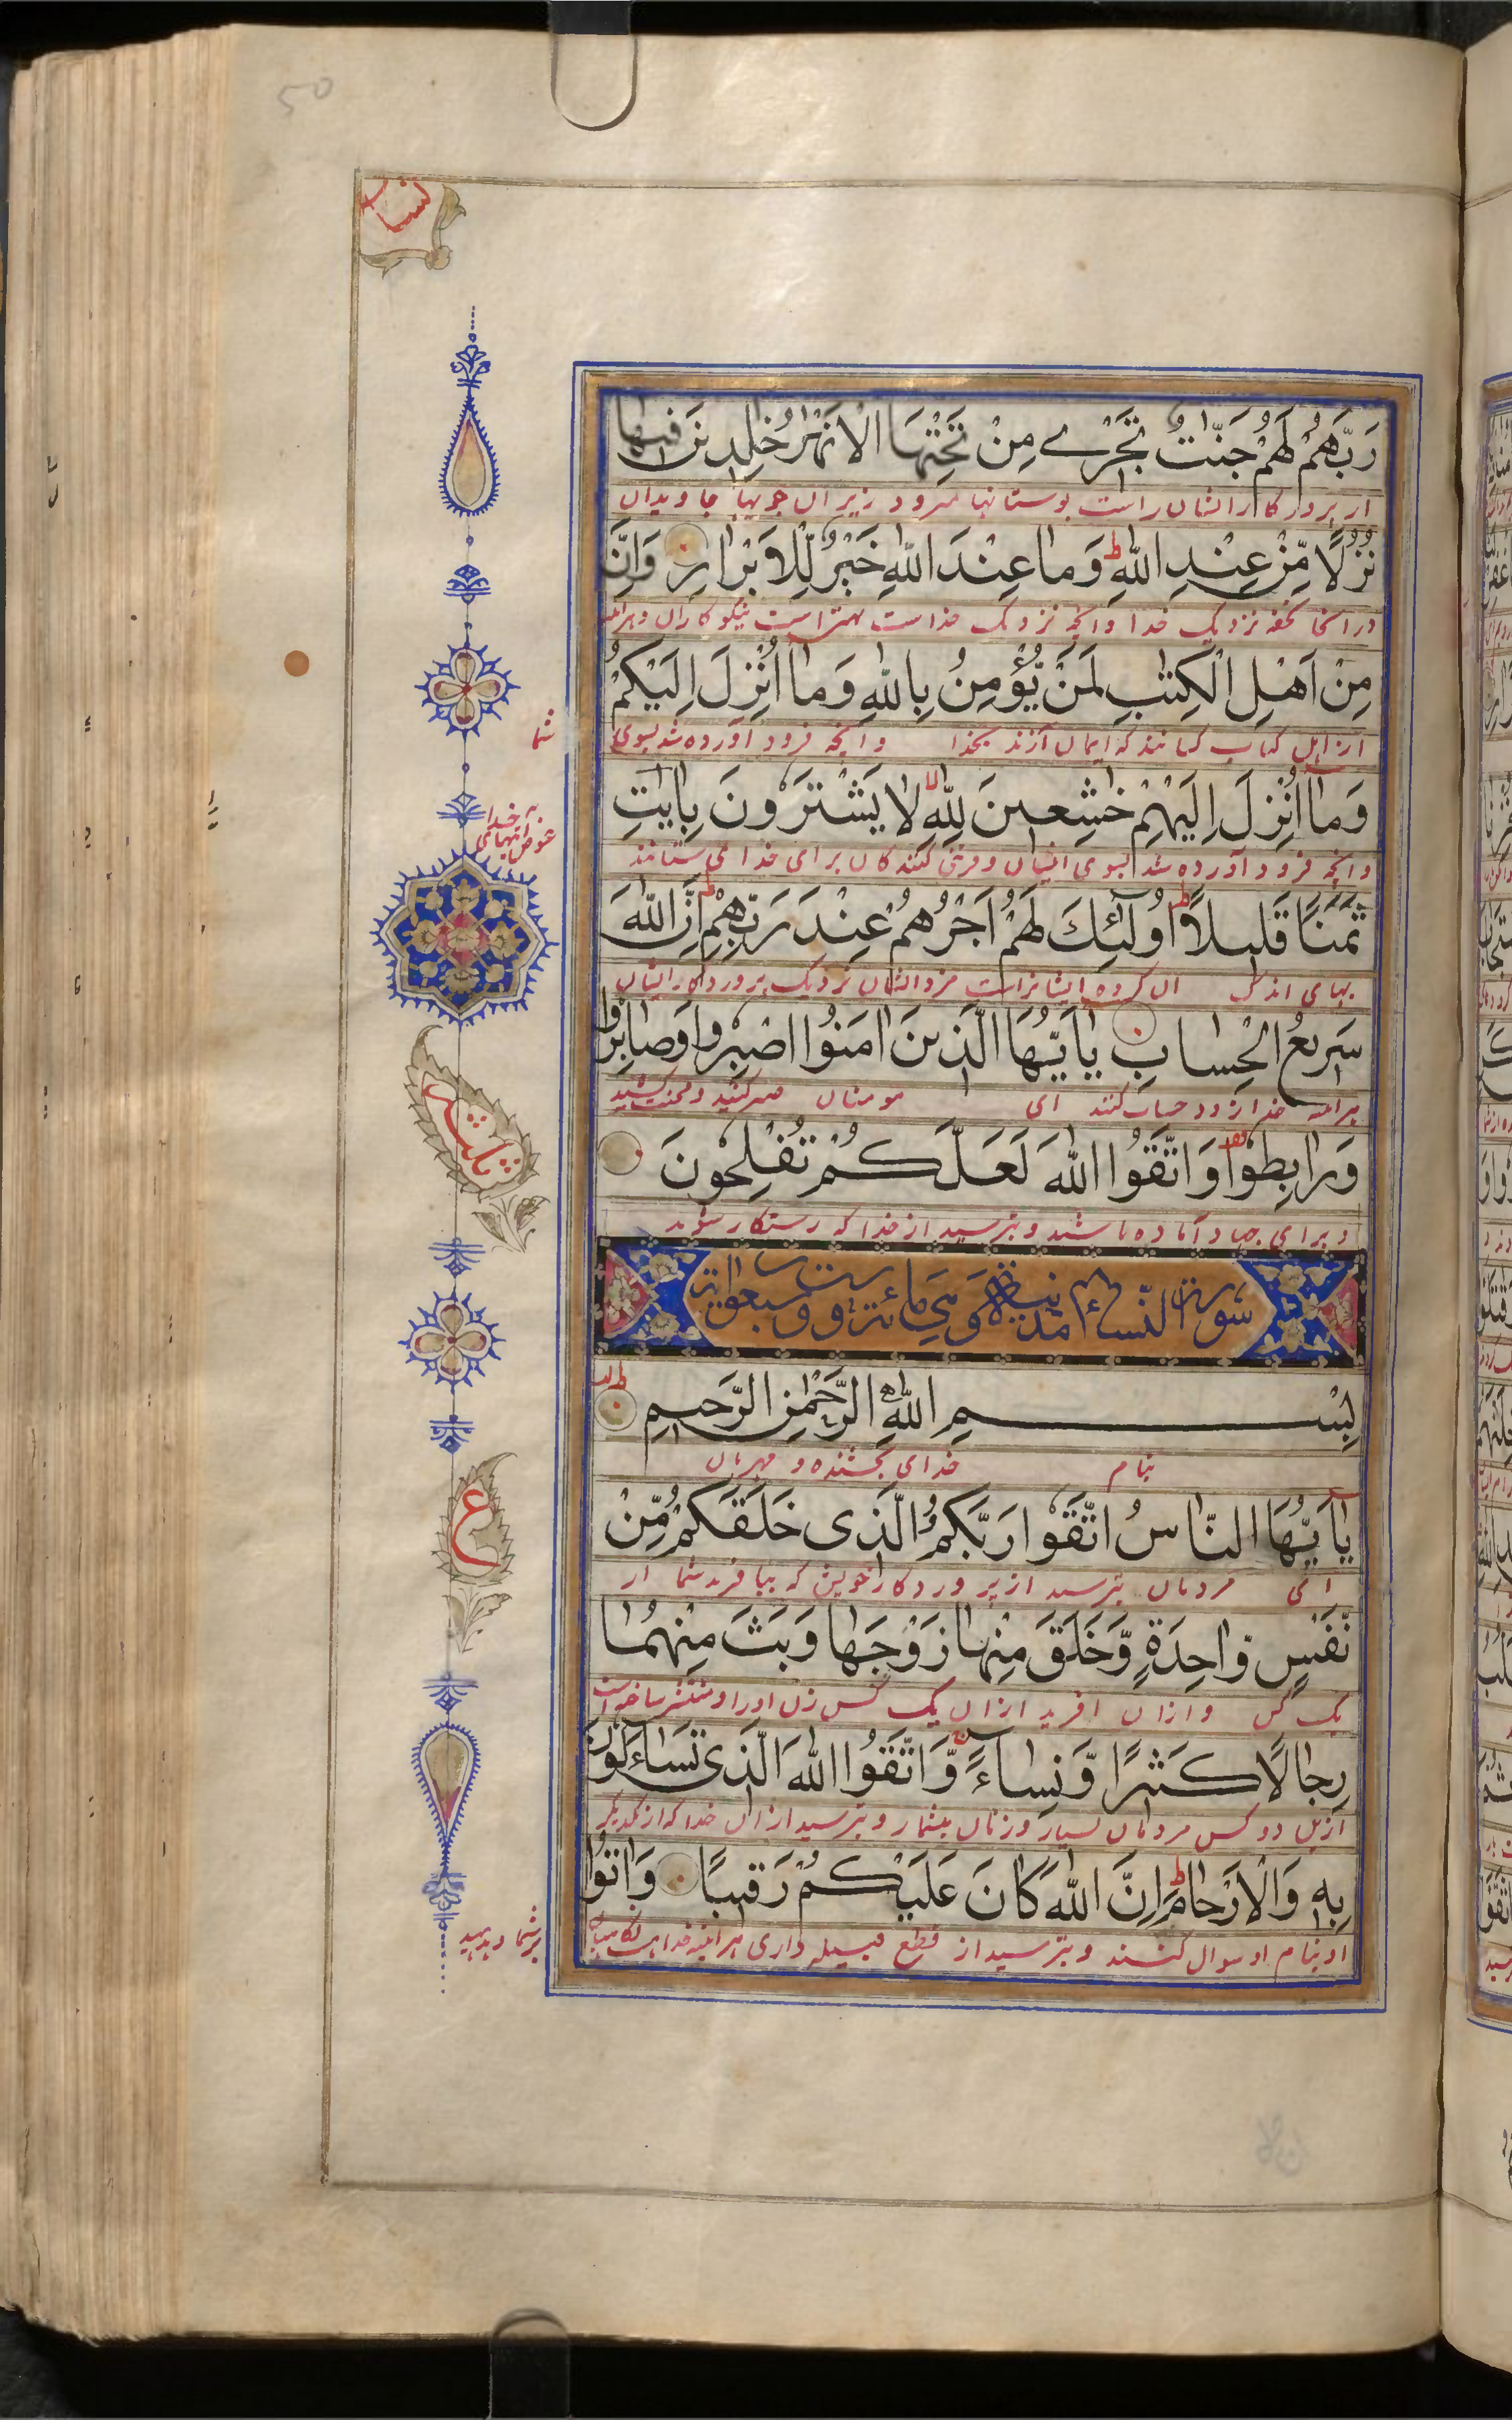 50
نسا
رَبَّهُمْ لَهُمْ جَنّٰتٌ تَجْرِے مِنْ تَحْتِهَا الْاَنْهٰرُ خٰلِدِينَ فِيهَا
از پروردکار ایشان راست بوستانها میرود زیر ان جویها جاویدان
نُزُلًا مِّنْ عِنْدِ اللّٰهِ ط وَمَا عِنْدَ اللّٰهِ خَيْرٌ لِّلْاَبْرَارِ وَاِنَّ
در انجا تحفه نزدیک خدا وانچه نزدیک خداست بهتر است نیکوکاران
مِنْ اَهْلِ الْكِتٰبِ لَمَنْ يُّؤْمِنُ بِاللّٰهِ وَمَا اُنْزِلَ اِلَيْكُمْ
از اهل کتاب کسانند که ایمان آرند بخدا وانچه فرود آورده شد بسوی
شما
وَمَا اُنْزِلَ اِلَيْهِمْ خٰشِعِينَ لِلّٰهِ لا لَا يَشْتَرُونَ بِاٰيٰتِ
وانچه فرود آورده شد بسوی ایشان فروتنی کنندکان برای خدا نمی ستانند
خدا
عوض
ثَمَنًا قَلِيلًا ط اُولٰٓئِكَ لَهُمْ اَجْرُهُمْ عِنْدَ رَبِّهِمْ ط اِنَّ اللّٰهَ
بهای اندک ان کروه ایشانراست مزد ایشان نزدیک پروردکار ایشان
سَرِيعُ الْحِسَابِ يٰٓاَيُّهَا الَّذِينَ اٰمَنُوا اصْبِرُوا وَصَابِرُوا
خدا زود حساب کنند ای مومنان صبر کنید ومحنت کشید
ثلثه
وَرَابِطُوا وَاتَّقُوا اللّٰهَ لَعَلَّكُمْ تُفْلِحُونَ
وبرای جهاد آماده باشید وبترسید از خدا که رستکار شوید
سورة النساء مدنية وهى مائة وست وسبعون اية
بِسْمِ اللّٰهِ الرَّحْمٰنِ الرَّحِيمِ
بنام خدای بخشنده و مهربان
يٰٓاَيُّهَا النَّاسُ اتَّقُوا رَبَّكُمُ الَّذِى خَلَقَكُمْ مِّنْ
ای مردمان بترسید از پروردکار خویش که بیافرید شما از
ع
نَّفْسٍ وَّاحِدَةٍ وَّخَلَقَ مِنْهَا زَوْجَهَا وَبَثَّ مِنْهُمَا
یک کس وازان افرید ازان یک کس زن اورا ومنتشر ساخت
رِجَالًا كَثِيرًا وَّنِسَاءً وَّاتَّقُوا اللّٰهَ الَّذِى تَسَاءَلُونَ
ازین دو کس مردمان بسیار وزنان بیشمار وبترسید ازان خدا که از یکدیکر
بِهِ وَالْاَرْحَامَ ط اِنَّ اللّٰهَ كَانَ عَلَيْكُمْ رَقِيبًا وَاٰتُوا
بنام او سوال کنند وبترسید از قطع
بر شما وبدهید